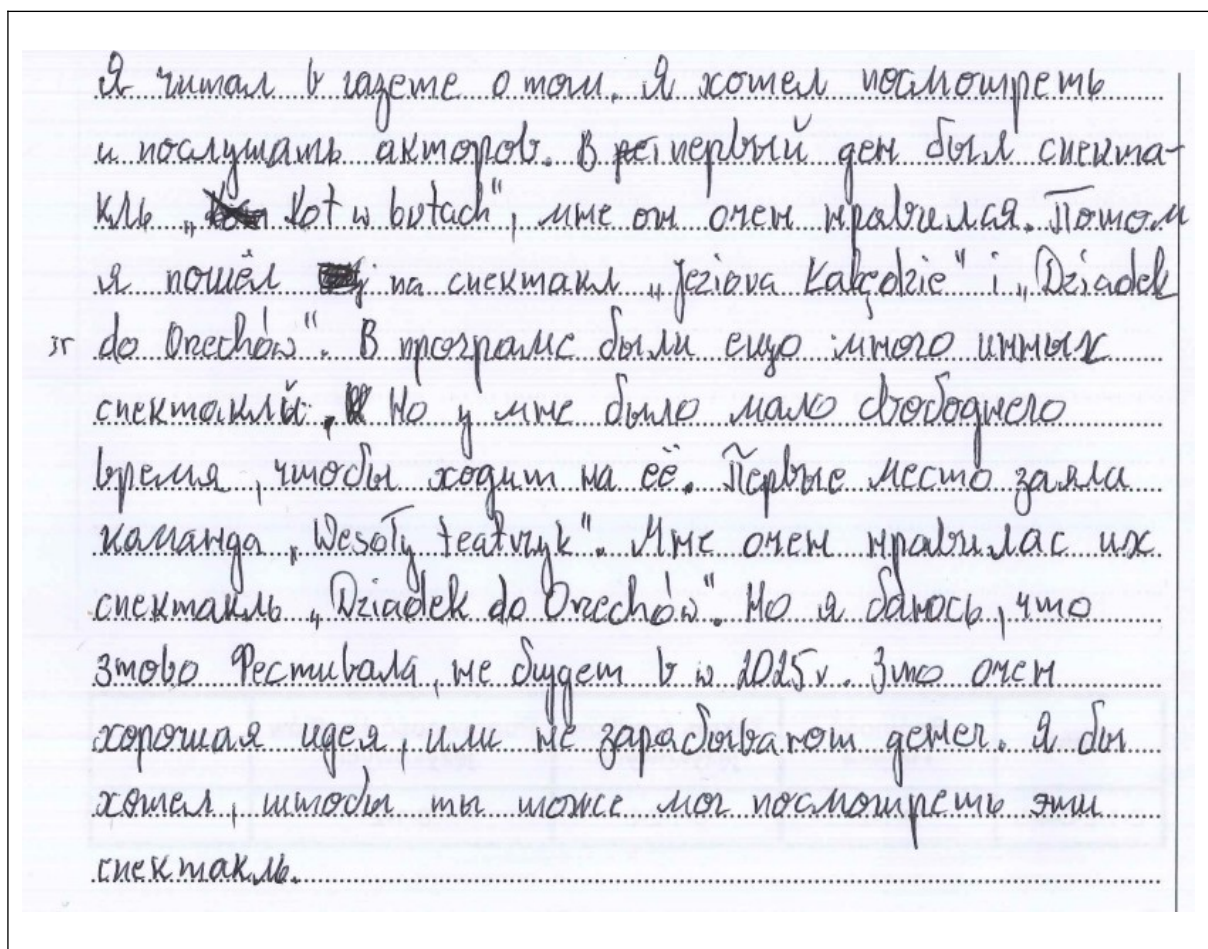 Я читал в газете о том. Я хотел посмотреть
и послушать акторов. В первый ден был спекта-
кль „Kot w butach", мне он очен нравился. Потом
я пошёл на спектакл „Jeziora Łabędzie" i „Dziadek
do Orzechów". В програме были ещо много инных
спектаклй. Но у мне было мало свободнего
время, чтобы ходит на её. Первые место заяла
каманда „Wesoły teatrzyk". Мне очен нравилас их
спектакль „Dziadek do Orzechów". Но я баюсь, что
этово Фестивала, не будет в w 2025 r. Это очен
хорошая идея, или не зарабывают денег. Я бы
хотел, штобы ты може мог посмотреть эти
спектакль.